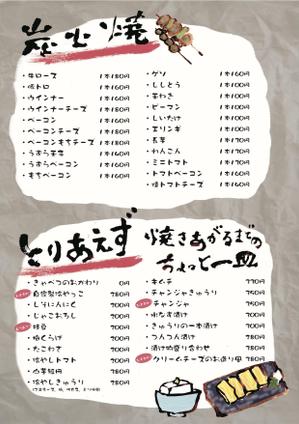 炭火焼
・牛ロース 1本180円
・豚トロ 1本160円
・ウインナー 1本160円
・ウインナーチーズ 1本180円
・ベーコン 1本160円
・ベーコンチーズ 1本180円
・ベーコンもちチーズ 1本180円
・うずらベーコン 1本160円
・もちベーコン 1本160円
・ゲソ 1本160円
・ししとう 1本160円
・ピーマン 1本160円
・しいたけ 1本160円
・エリンギ 1本160円
・長芋 1本170円
・れんこん 1本170円
・ミニトマト 1本170円
・トマトベーコン 1本160円
とりあえず
・きゃべつのおかわり 0円
・自家製冷やっこ 280円
・しそにんにく 300円
・じゃこおろし 300円
・枝豆 300円
・塩くらげ 300円
・たこわさ 300円
・冷やしトマト 350円
・冷やしきゅうり 280円
焼きあがるまでの
ちょっと一皿
・キムチ
・チャンジャきゅうり 750円
・チャンジャ 750円
・水なす漬け 700円
・きゅうりの一本漬け 300円
・つんつん漬け 380円
・漬け物盛り合わせ 780円
・クリームチーズのお造り風 380円